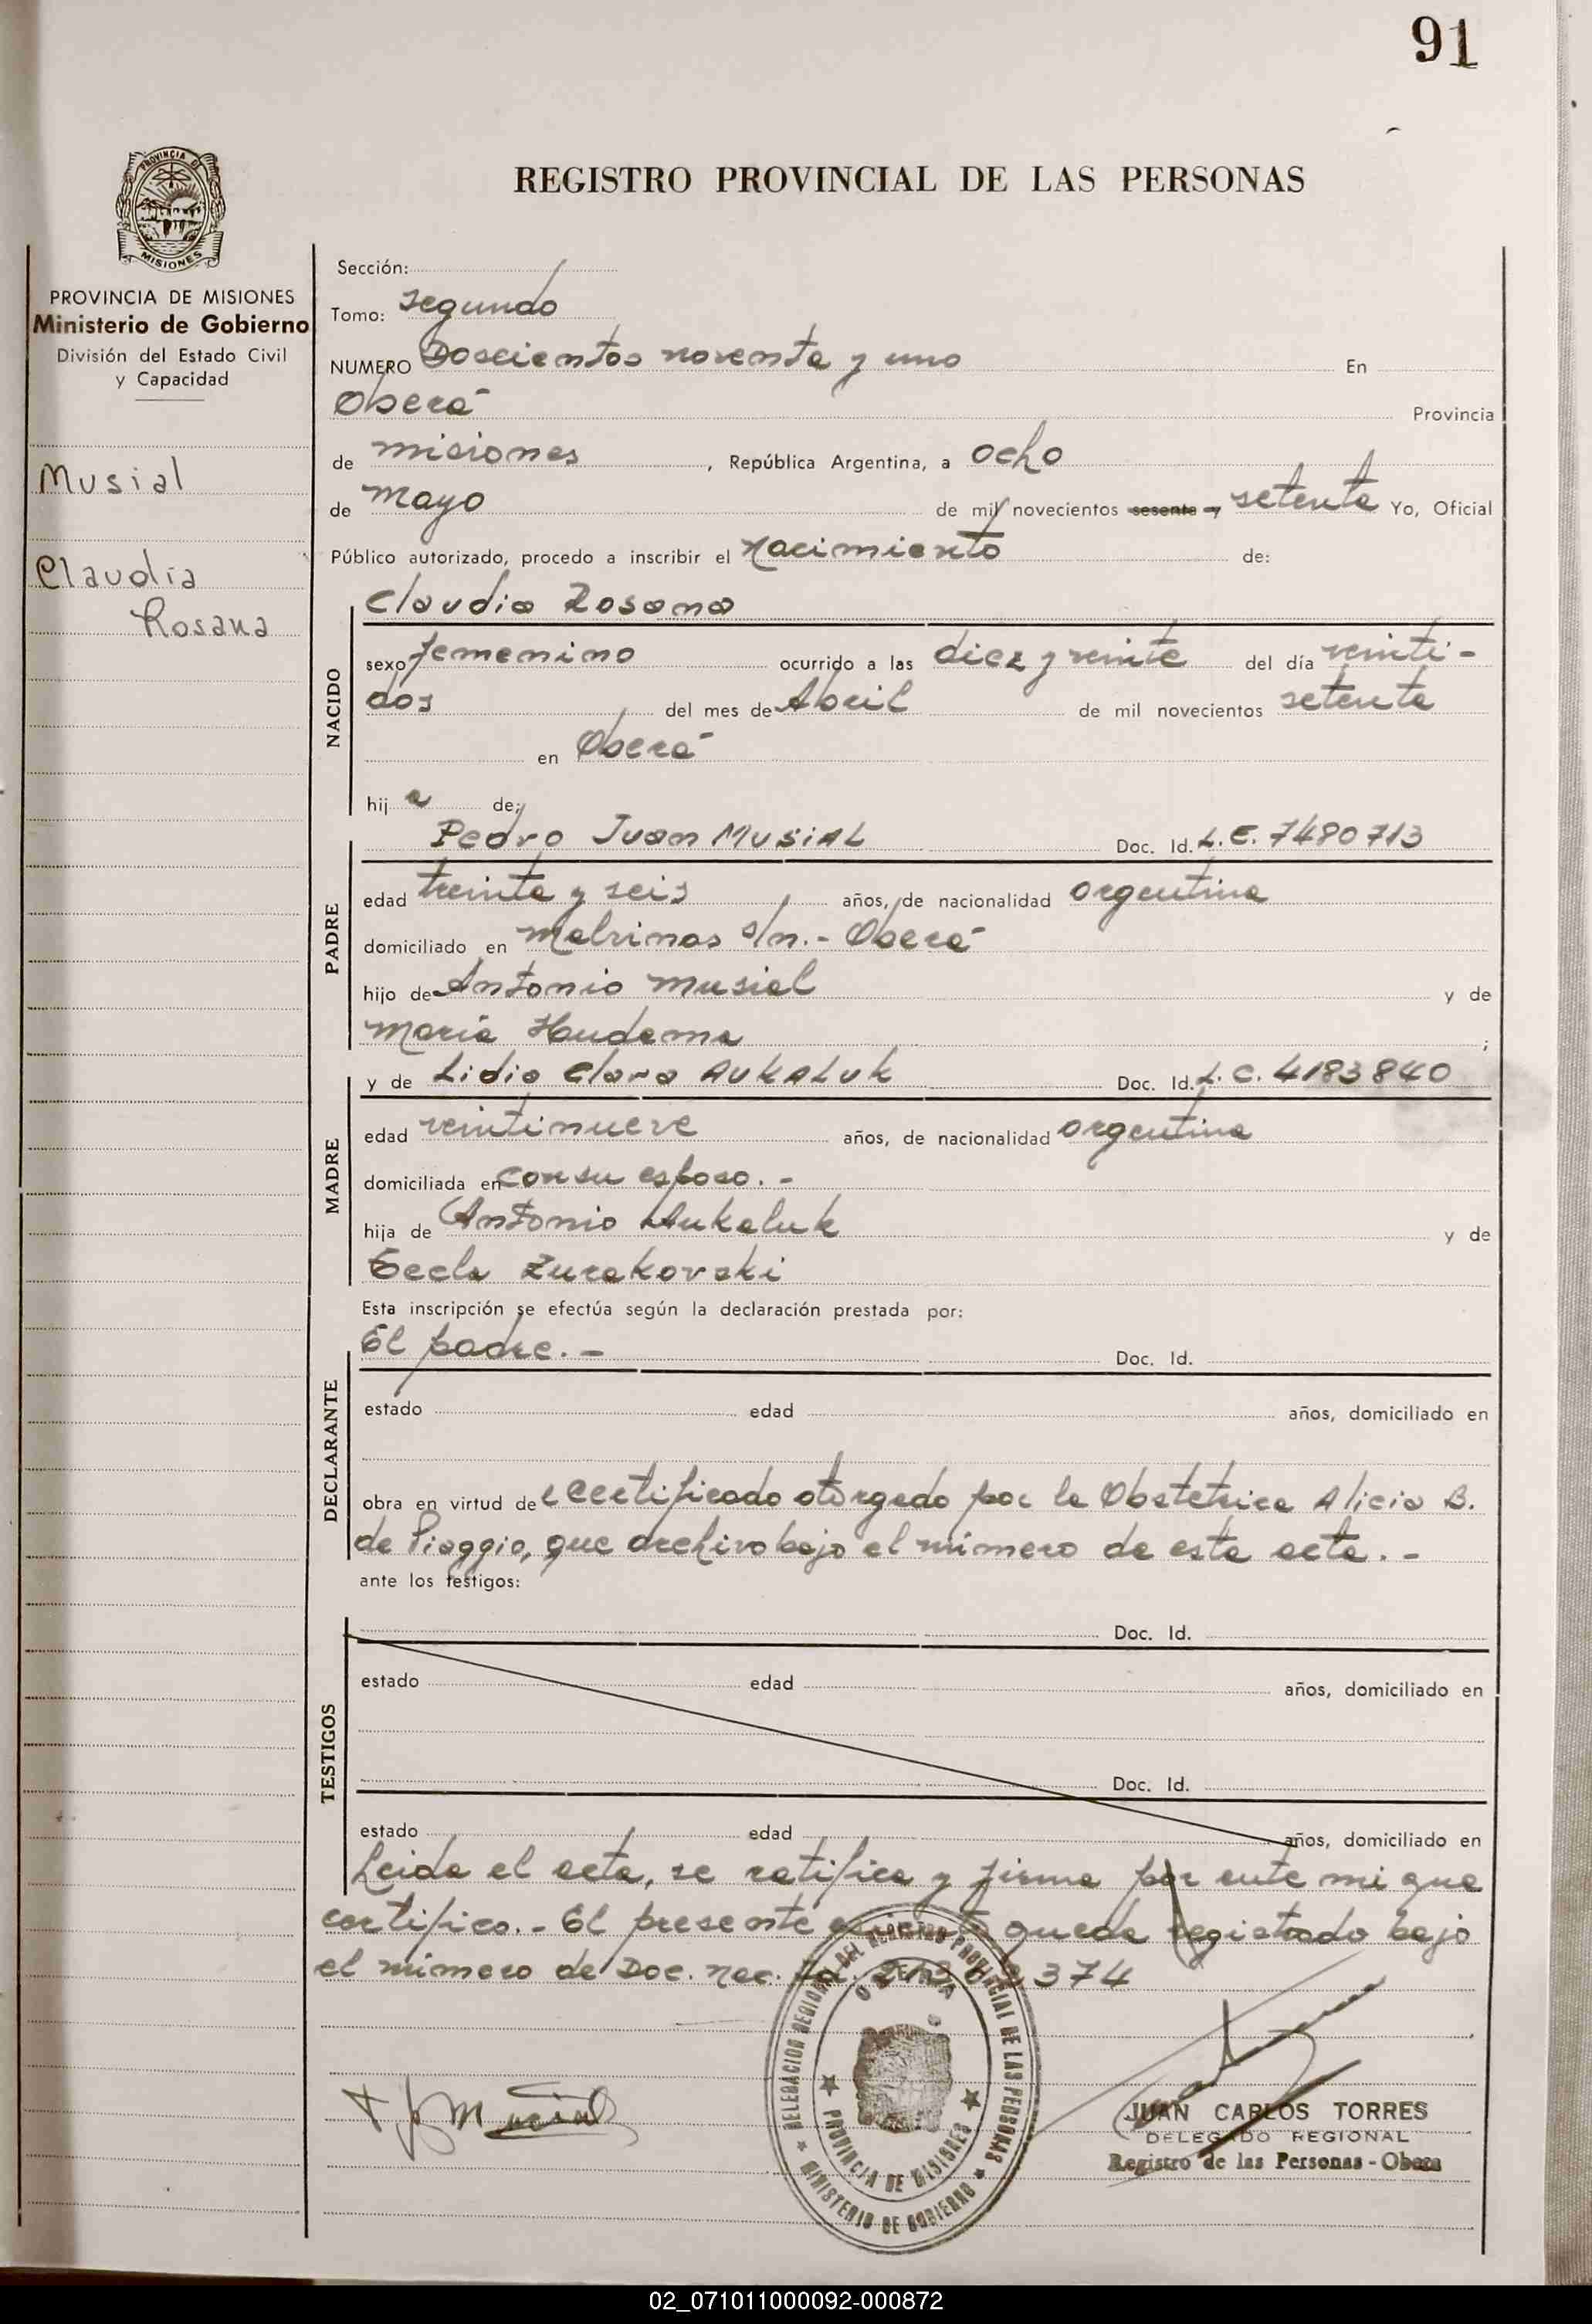 91
REGISTRO PROVINCIAL DE LAS PERSONAS
PROVINCIA DE
MISIONES
PROVINCIA DE MISIONES
Ministerio de Gobierno
División del Estado Civil
y Capacidad
Musial
Claudia
Rosana
Sección:
Tomo: segundo
NUMERO Doscientos noventa y uno En
Oberá Provincia
de misiones, República Argentina, a ocho
de mayo de mil novecientos sesenta y setenta Yo, Oficial
Público autorizado, procedo a inscribir el nacimiento de:
Claudia Rosana
NACIDO
sexo femenino ocurrido a las diez y veinte del día veinti-
dos del mes de Abril de mil novecientos setenta
en Oberá
hij a de:
Pedro Juan MUSIAL Doc. Id. L.E. 7480713
PADRE
edad treinta y seis años, de nacionalidad argentina
domiciliado en Malvinas s/n.- Oberá
hijo de Antonio Musial y de
María ;
y de Lidia Clara AUKALUK Doc. Id. L.C. 4183840
MADRE
edad veintinueve años, de nacionalidad argentina
domiciliada en con su esposo.-
hija de Antonio Aukaluk y de
Tecla Zurakovski
Esta inscripción se efectúa según la declaración prestada por:
El padre.- Doc. Id.
DECLARANTE
estado edad años, domiciliado en
obra en virtud de certificado otorgado por la Obstetrica Alicia B.
de Piaggio, que archivo bajo el número de esta acta.-
ante los testigos:
Doc. Id.
TESTIGOS
estado edad años, domiciliado en
Doc. Id.
estado edad años, domiciliado en
Leida el acta, se ratifica y firma por ante mi que
certifico.- El presente queda registrado bajo
el número de Doc. Nac. Id. 374
DELEGACION REGIONAL DEL REGISTRO PROVINCIAL DE LAS PERSONAS
OBERA
PROVINCIA DE MISIONES
MINISTERIO DE GOBIERNO
Musial
JUAN CARLOS TORRES
DELEGADO REGIONAL
Registro de las Personas - Obera
02_071011000092-000872